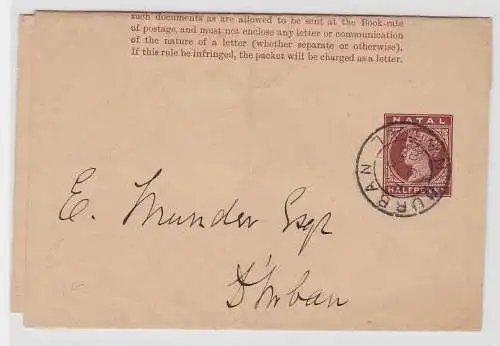 such documents as are allowed to be sent at the Book-rate
of postage, and must not enclose any letter or communication
of the nature of a letter (whether separate or otherwise).
If this rule be infringed, the packet will be charged as a letter.
NATAL
HALFPENNY
DURBAN
E. Munder Esqr
D'Urban